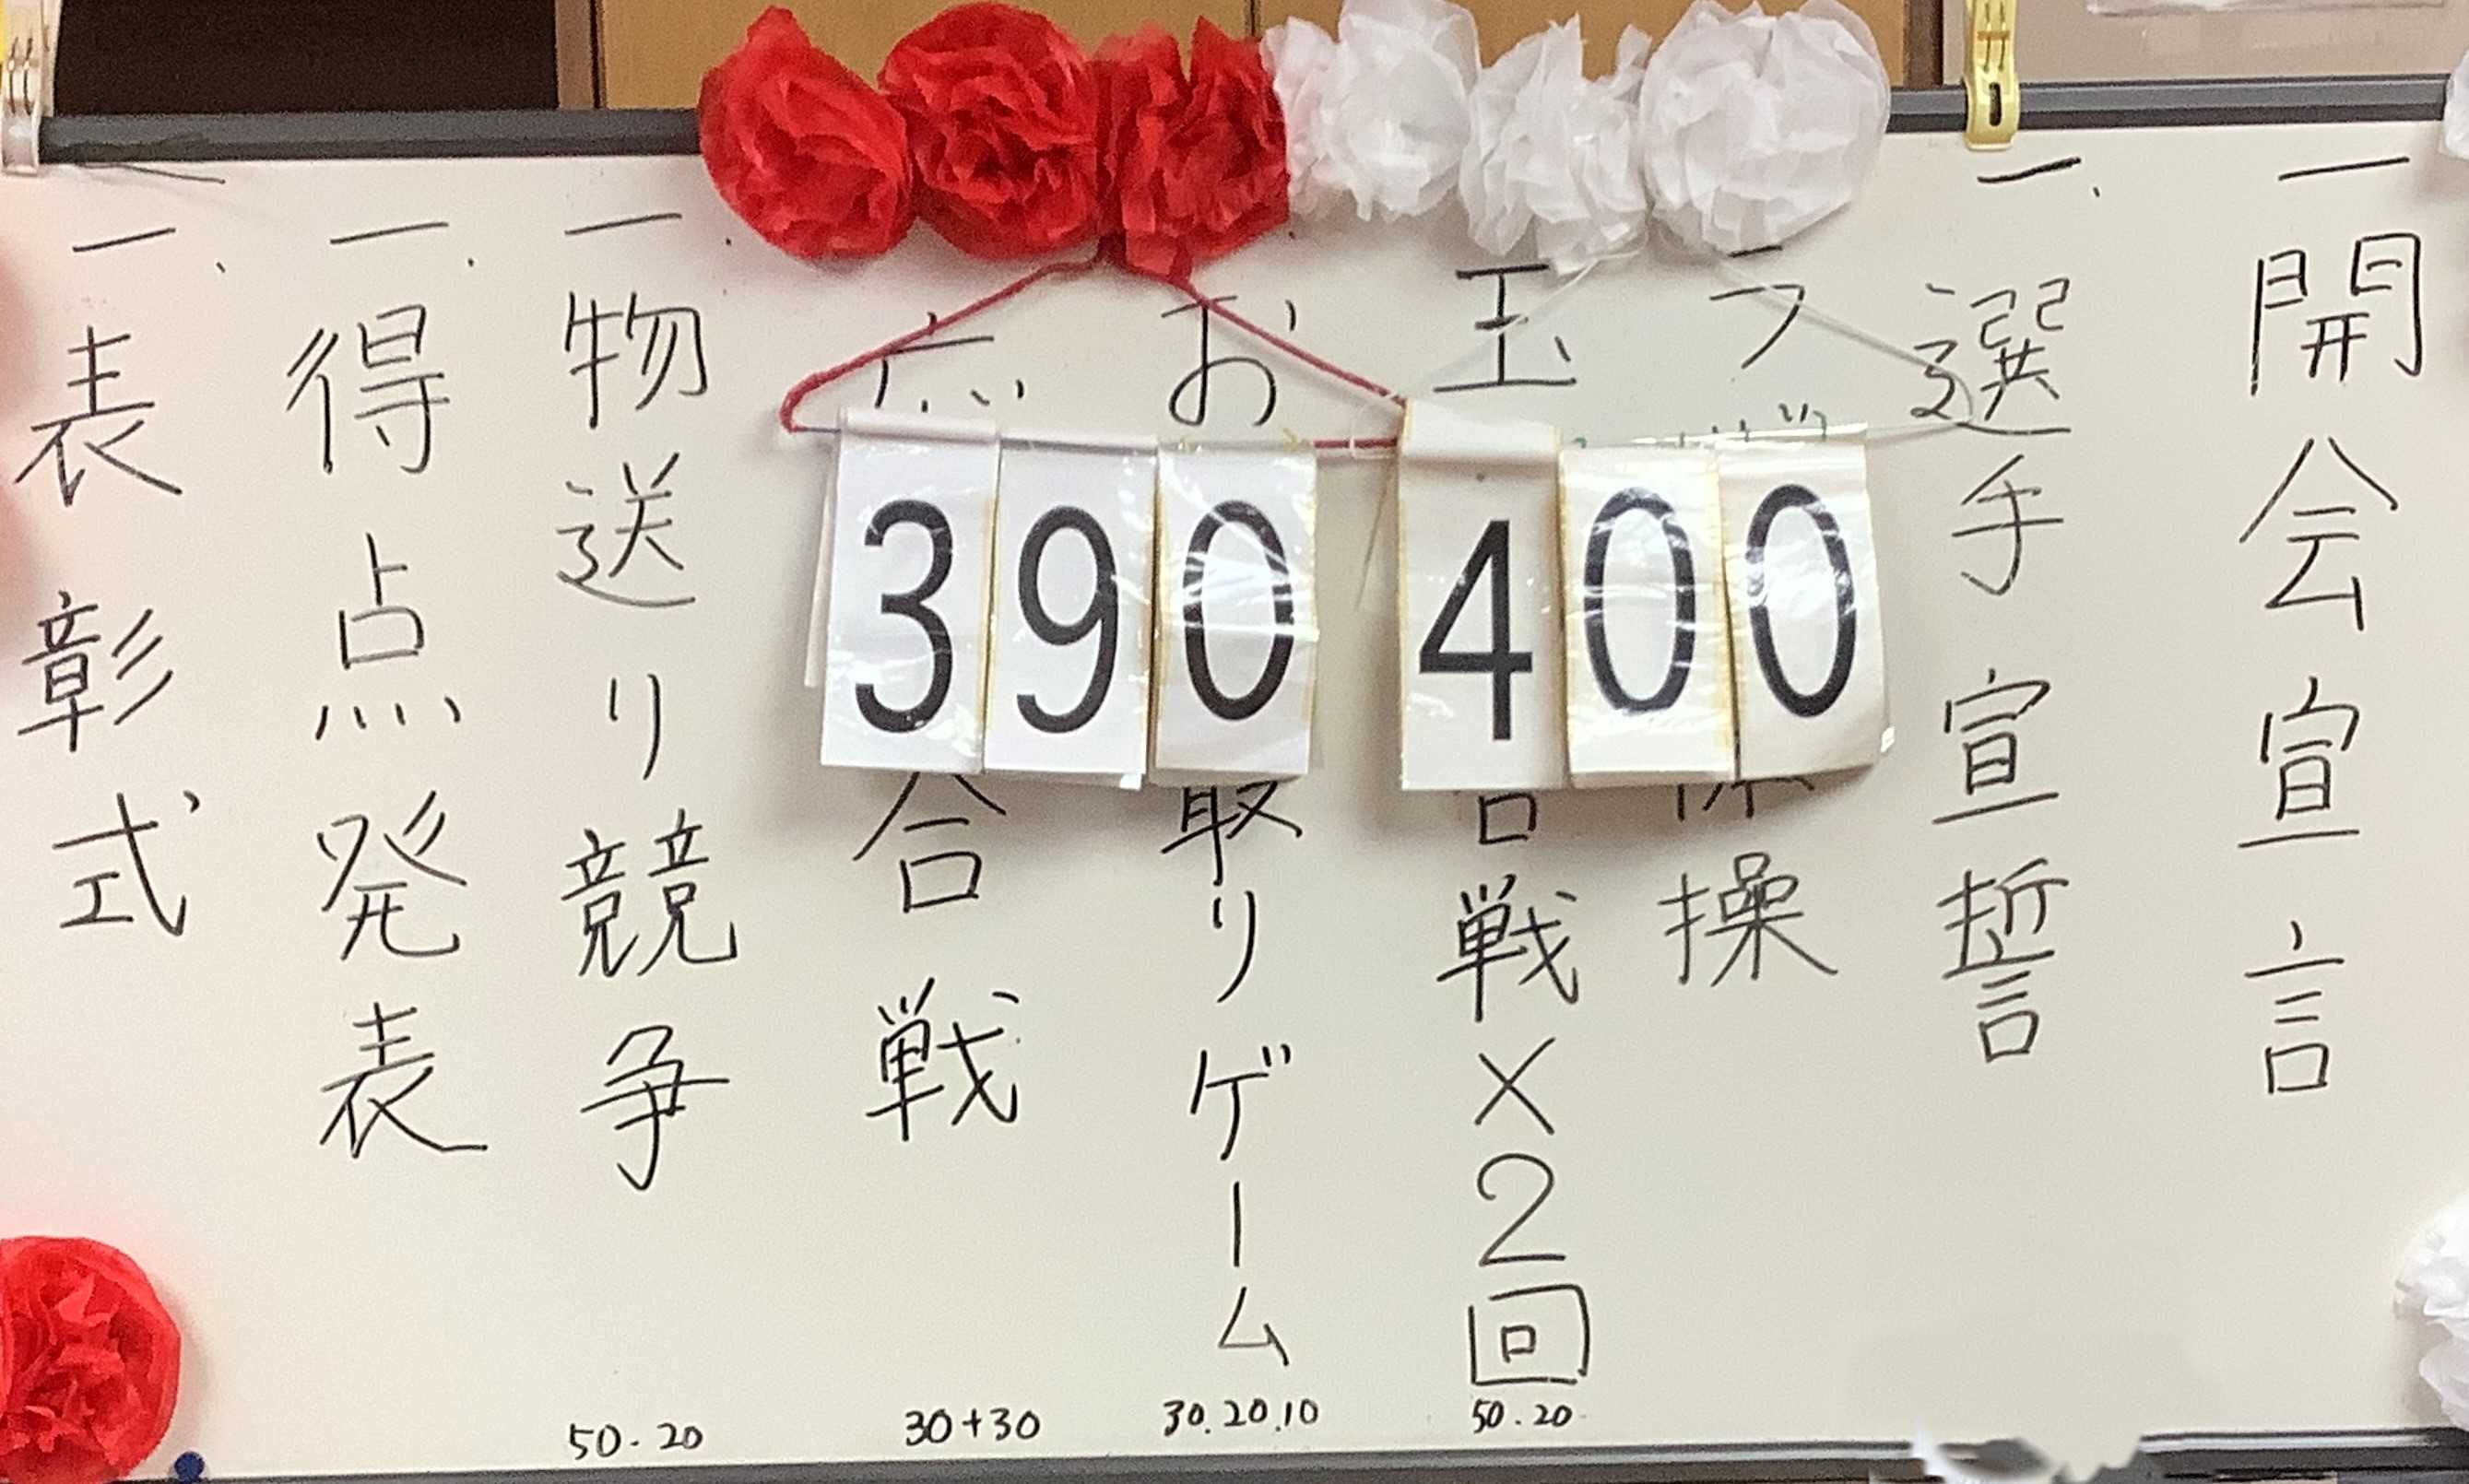 一 開会宣言
一、選手宣誓
操
玉 戦×2回
50.20
お 取りゲーム
30.20.10
応 合戦
30+30
一 物送り競争
50.20
一、得点発表
一、表彰式
390
400